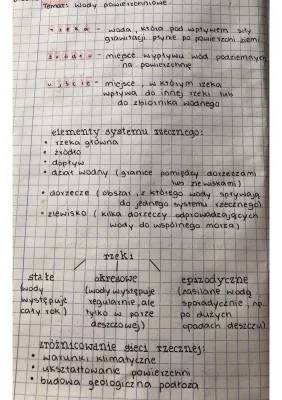 Temat: Wody powierzchniowe
rzeka - woda, która pod wpływem siły
grawitacji płynie po powierzchni ziemi
źródło - miejsce wypływu wód podziemnych
na powierzchnię
ujście - miejsce, w którym rzeka
wpływa do innej rzeki lub
do zbiornika wodnego
elementy systemu rzecznego:
• rzeka główna
• źródło
• dopływ
• dział wodny (granice pomiędzy dorzeczami
lub zlewiskami)
• dorzecze (obszar, z którego wody spływają
do jednego systemu rzecznego)
• zlewisko (kilka dorzeczy odprowadzających
wody do wspólnego morza)
rzeki
stałe okresowe epizodyczne
(wody (wody występuje (zasilane wodą
występuje regularnie, ale sporadycznie, np.
cały rok) tylko w porze po dużych
deszczowej) opadach deszczu)
zróżnicowanie sieci rzecznej:
• warunki klimatyczne
• ukształtowanie powierzchni
• budowa geologiczna podłoża